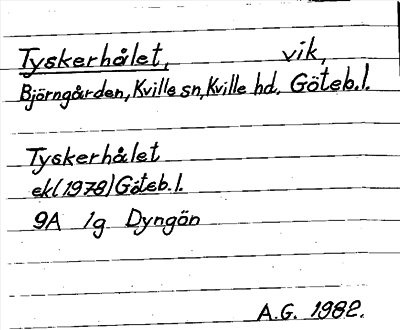 Tyskerhålet, vik,
Björngården, Kville sn, Kville hd. Göteb.l.
Tyskerhålet
ek (1978) Göteb.l.
9A 1g Dyngön
A.G. 1982.